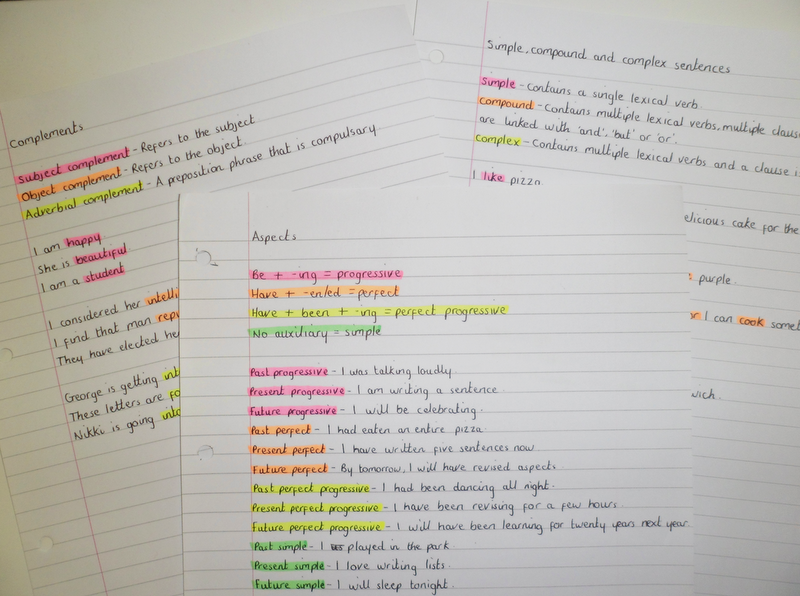 Complements
Subject complement - Refers to the subject
Object complement - Refers to the object
Adverbial complement - A preposition phrase that is compulsary
I am happy
She is beautiful
I am a student
I considered her
I find that man
They have elected
George is getting
These letters are
Nikki is going
Simple, compound and complex sentences
Simple - Contains a single lexical verb.
Compound - Contains multiple lexical verbs, multiple
are linked with 'and', 'but' or 'or'.
Complex - Contains multiple lexical verbs and a clause
I like pizza
cake for the
purple.
I can cook
Aspects
Be + -ing = progressive
Have + -en/ed = perfect
Have + been + -ing = perfect progressive
No auxiliary = simple
Past progressive - I was talking loudly.
Present progressive - I am writing a sentence.
Future progressive - I will be celebrating.
Past perfect - I had eaten an entire pizza.
Present perfect - I have written five sentences now
Future perfect - By tomorrow, I will have revised aspects.
Past perfect progressive - I had been dancing all night.
Present perfect progressive - I have been revising for a few hours.
Future perfect progressive - I will have been learning for twenty years next year.
Past simple - I played in the park.
Present simple - I love writing lists.
Future simple - I will sleep tonight.